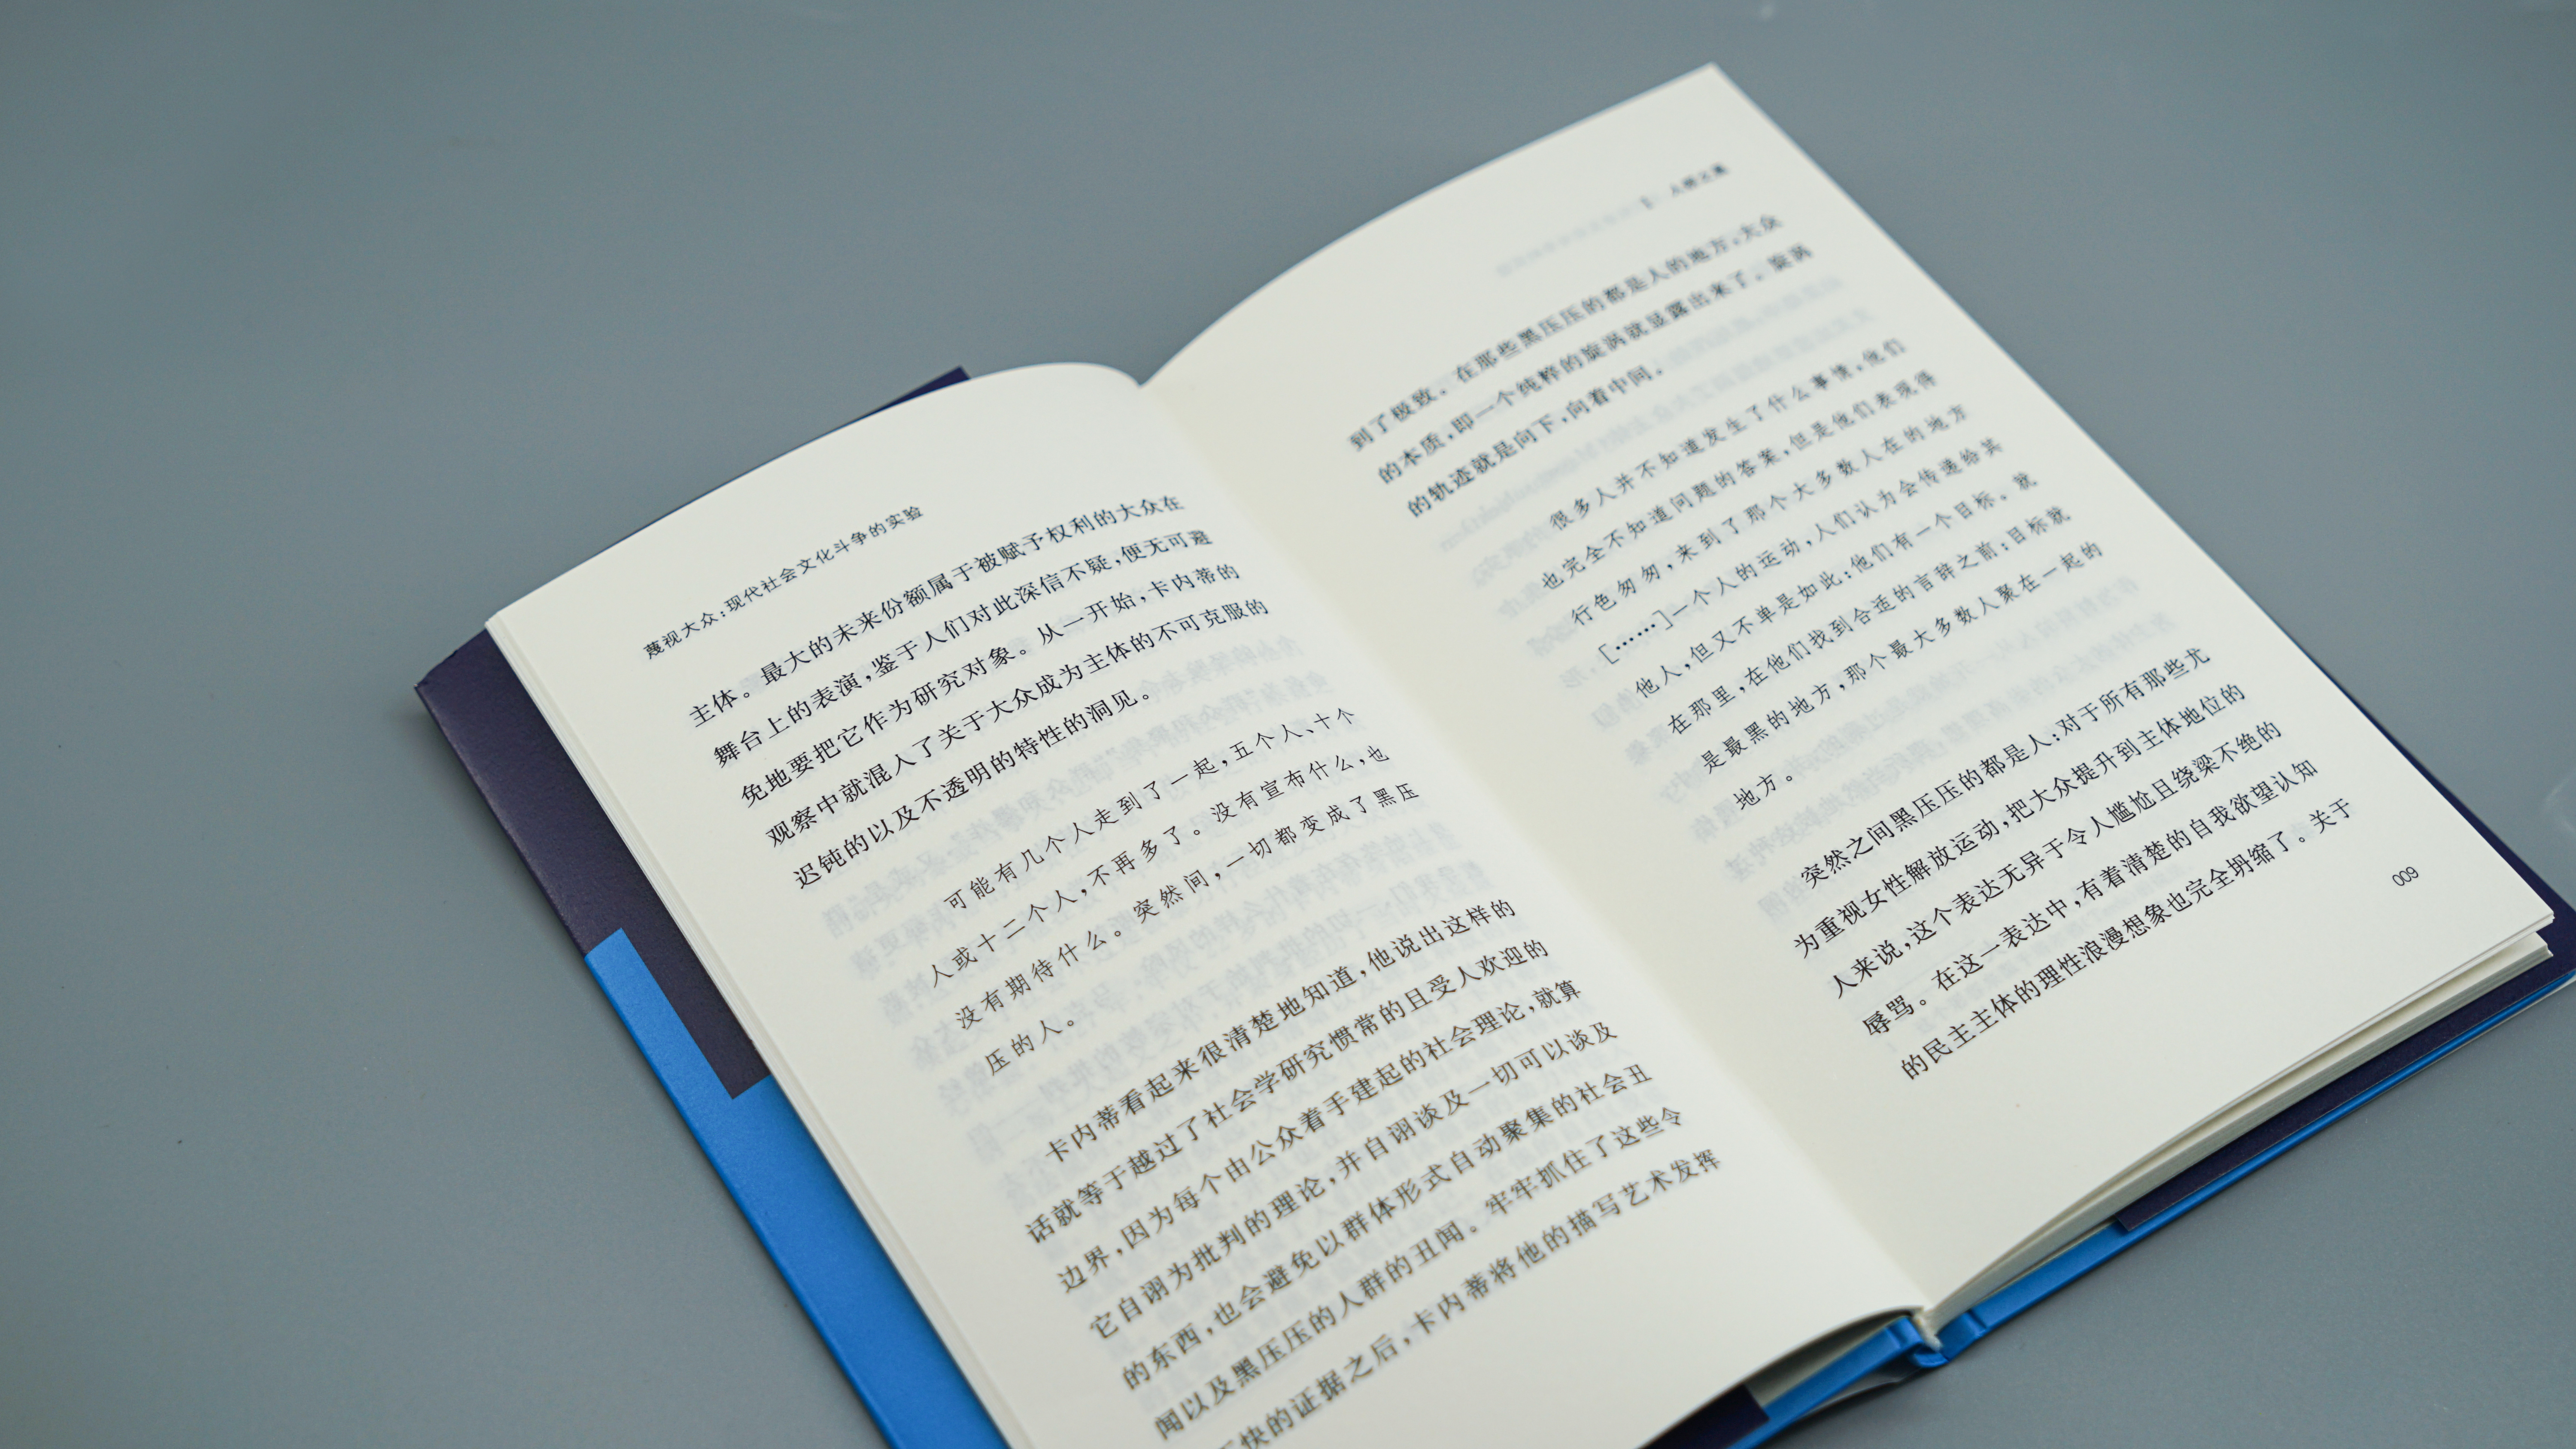 蔑视大众：现代社会文化斗争的实验
主体。最大的未来份额属于被赋予权利的大众在
舞台上的表演，鉴于人们对此深信不疑，便无可避
免地要把它作为研究对象。从一开始，卡内蒂的
观察中就混入了关于大众成为主体的不可克服的
迟钝的以及不透明的特性的洞见。
可能有几个人走到了一起，五个人、十个
人或十二个人，不再多了。没有宣布什么，也
没有期待什么。突然间，一切都变成了黑压
压的人。
卡内蒂看起来很清楚地知道，他说出这样的
话就等于越过了社会学研究惯常的且受人欢迎的
边界，因为每个由公众着手建起的社会理论，就算
它自诩为批判的理论，并自诩谈及一切可以谈及
的东西，也会避免以群体形式自动聚集的社会丑
闻以及黑压压的人群的丑闻。牢牢抓住了这些令
快的证据之后，卡内蒂将他的描写艺术发挥
到了极致。在那些黑压压的都是人的地方，大众
的本质，即一个纯粹的旋涡就显露出来了。旋涡
的轨迹就是向下，向着中间。
很多人并不知道发生了什么事情，他们
也完全不知道问题的答案，但是他们表现得
行色匆匆，来到了那个大多数人在的地方
[……]一个人的运动，人们认为会传递给其
他人，但又不单是如此：他们有一个目标。就
在那里，在他们找到合适的言辞之前：目标就
是最黑的地方，那个最大多数人聚在一起的
地方。
突然之间黑压压的都是人：对于所有那些尤
为重视女性解放运动，把大众提升到主体地位的
人来说，这个表达无异于令人尴尬且绕梁不绝的
辱骂。在这一表达中，有着清楚的自我欲望认知
的民主主体的理性浪漫想象也完全坍缩了。关于
009